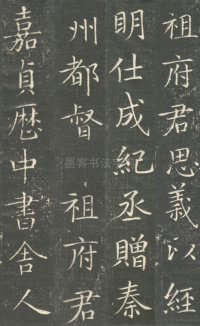 祖府君思義以經
明仕成紀丞贈秦
州都督 祖府君
嘉貞歷中書舍人
墨客书法